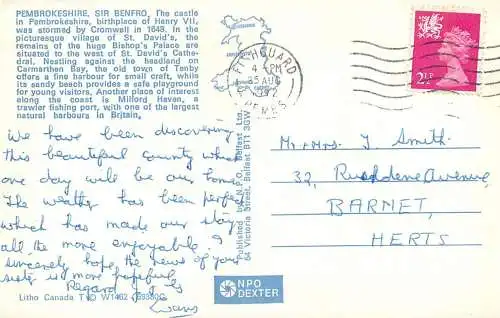 PEMBROKESHIRE, SIR BENFRO, The castle
in Pembrokeshire, birthplace of Henry VII,
was stormed by Cromwell in 1648. In the
picturesque village of St. David's, the
remains of the huge Bishop's Palace are
situated to the west of St. David's Cathe-
dral. Nestling against the headland on
Carmarthen Bay, the old town of Tenby
offers a fine harbour for small craft, while
its sandy beach provides a safe playground
for young visitors. Another place of interest
along the coast is Milford Haven, a
trawler fishing port, with one of the largest
natural harbours in Britain.
We have been discovering
this beautiful county where
one day will be our home.
The weather has been perfect
which has made our stay
all the more enjoyable. I
sincerely hope the news of your
sister is more hopeful.
Regards to
Litho Canada T O W1462
Published by N.P.O. Belfast Ltd.
64 Victoria Street, Belfast BT1 3GW
NPO
DEXTER
FISHGUARD
4 PM
25 AUG
PEMBS
2½P
Mr & Mrs. J. Smith.
32, Ruddene Avenue,
BARNET,
HERTS